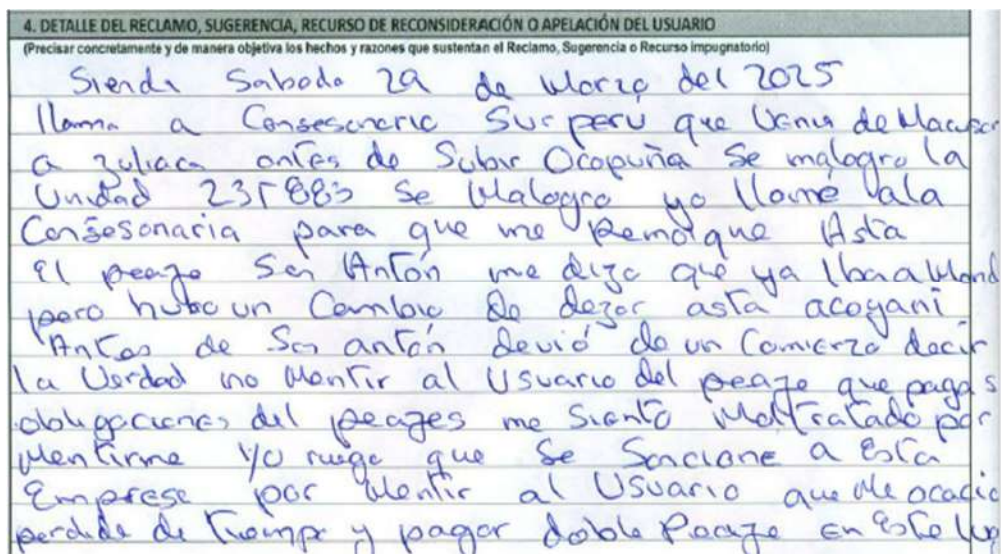 4. DETALLE DEL RECLAMO, SUGERENCIA, RECURSO DE RECONSIDERACIÓN O APELACIÓN DEL USUARIO
(Precisar concretamente y de manera objetiva los hechos y razones que sustentan el Reclamo, Sugerencia o Recurso Impugnatorio)
Siendo Sabado 29 de Marzo del 2025
llama a Consesonario Surperu que Venia de
a Juliaca antes de Subir Ocopuña Se malogro la
Unidad Se Malogro yo llamé ala
Consesonaria para que me Remolque Asta
el peaje San Antón me dijo que ya Iba a Mand
pero hubo un Cambio de dejar asta acoyani
Antes de San antón devió de un Comienzo decir
la Verdad no Mentir al Usuario del peaje que pagas
obligaciones del peajes me Siento Maltratado por
Mentirme Yo ruego que Se Sancione a Esta
Emprese por Mentir al Usuario que Me ocacio
perdida de tiempo y pagar doble Peaje en Este